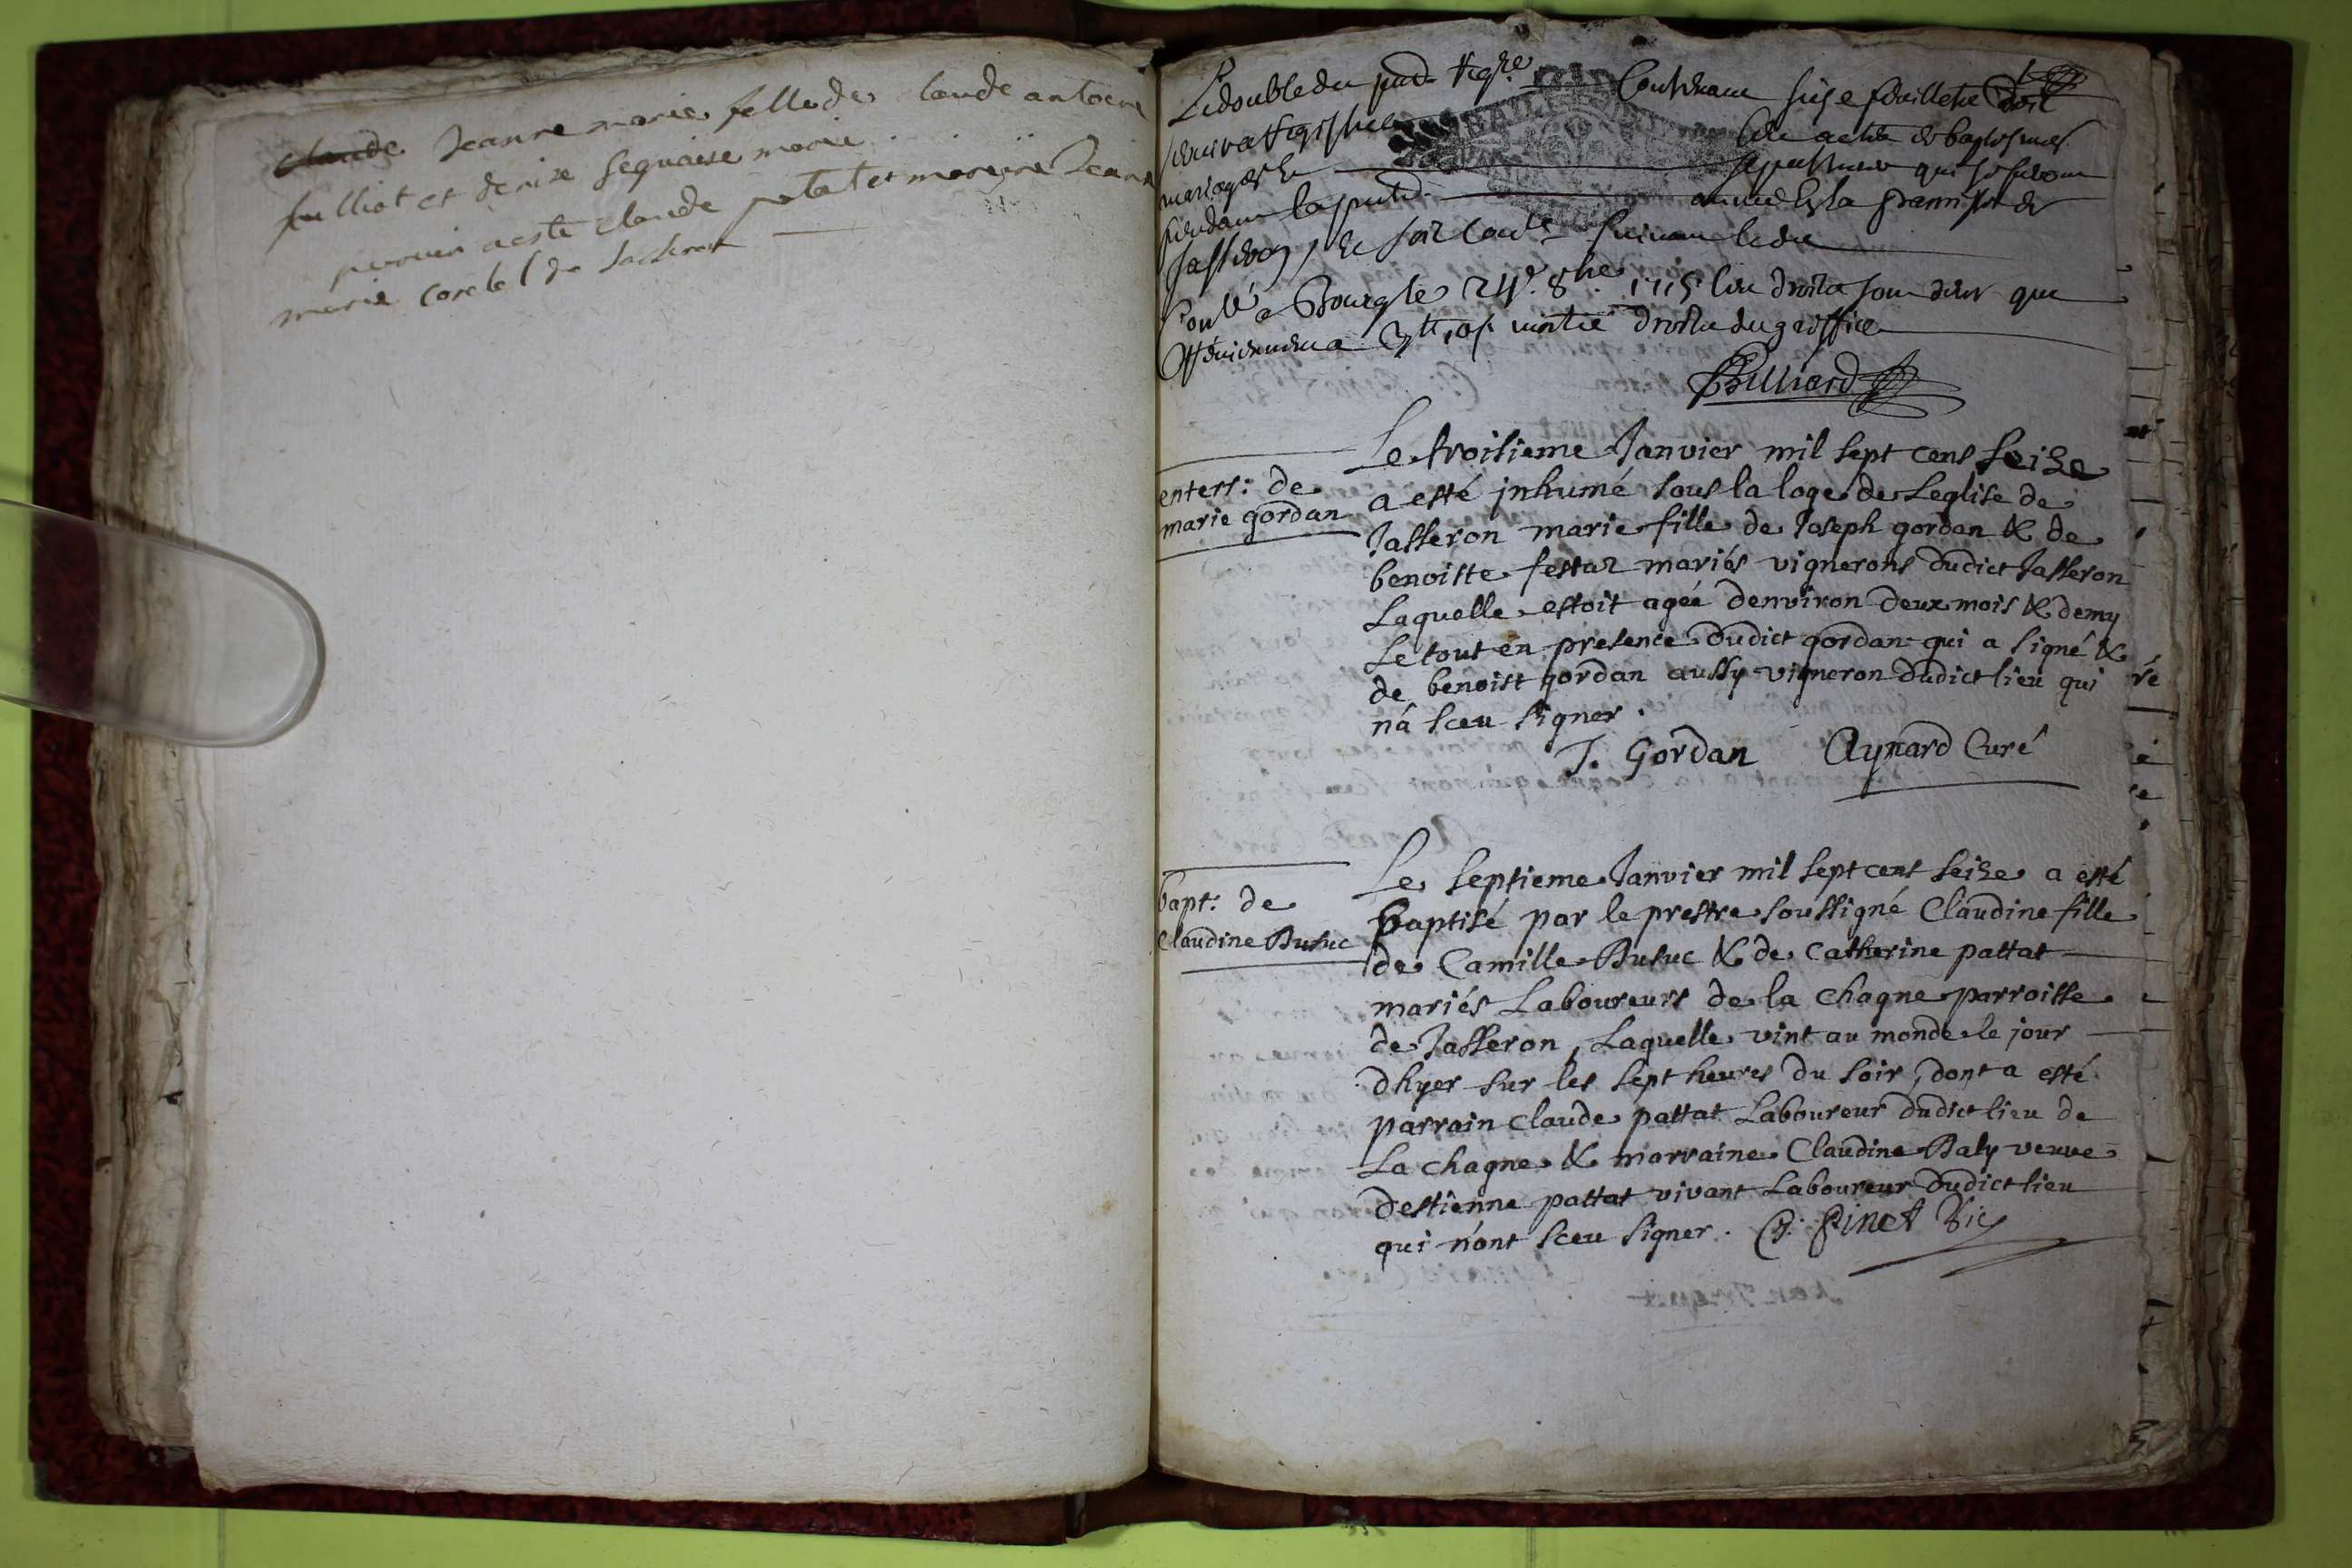 Jeanne marie fille de claude antoine
fulliot et denise sequaise marie
perrein a esté claude patat et mareine Jeane
marie corcel de Jasseron
Le double du pnt Regre Contenant seize feuillets
servira Registre des actes de baptesmes
mariages & sepultures qui se feront
pendant la pnte année En la parroisse de
Jasseron
a Bourg le 24e 8bre 1715
droits du greffe
Billiard
enterr: de
marie gordan
Le troisieme Janvier mil sept cens seize
a esté jnhumé sous la loge de Leglise de
Jasseron marie fille de Joseph gordan & de
benoitte festaz mariés vignerons dudict Jasseron
Laquelle estoit agée denviron deux mois & demy
Le tout en presence dudict gordan qui a signé &
de benoist gordan aussy vigneron dudict lieu qui
n'a sceu signer.
J. Gordan Aynard Curé
bapt: de
Claudine Butuc
Le septieme Janvier mil sept cent seize a esté
baptisé par le prestre soussigné Claudine fille
de Camille Butuc & de Catherine pattat
mariés Laboureurs de la chagne parroisse
de Jasseron, Laquelle vint au monde le jour
dhyer sur les sept heures du soir, dont a esté
parrain Claude pattat Laboureur dudict lieu de
La chagne & marraine Claudine Baly veuve
destienne pattat vivant Laboureur dudict lieu
qui n'ont sceu signer. Pinet Vic